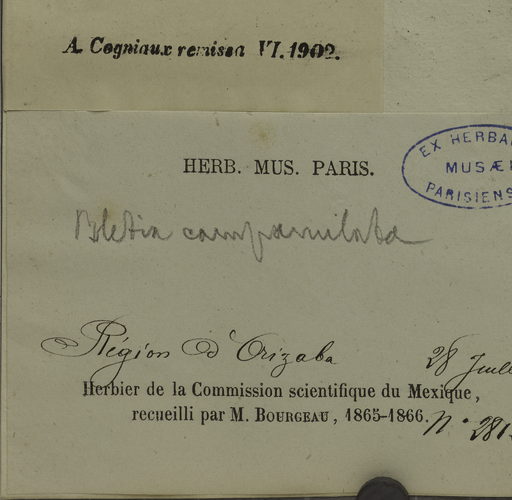 A. Cogniaux remissa VI. 1902.
HERB. MUS. PARIS.
EX HERBA
MUSÆ
PARISIENS
Bletia campanulata
Région d'Orizaba
28 Juill
Herbier de la Commission scientifique du Mexique,
recueilli par M. BOURGEAU, 1865-1866.
N° 281